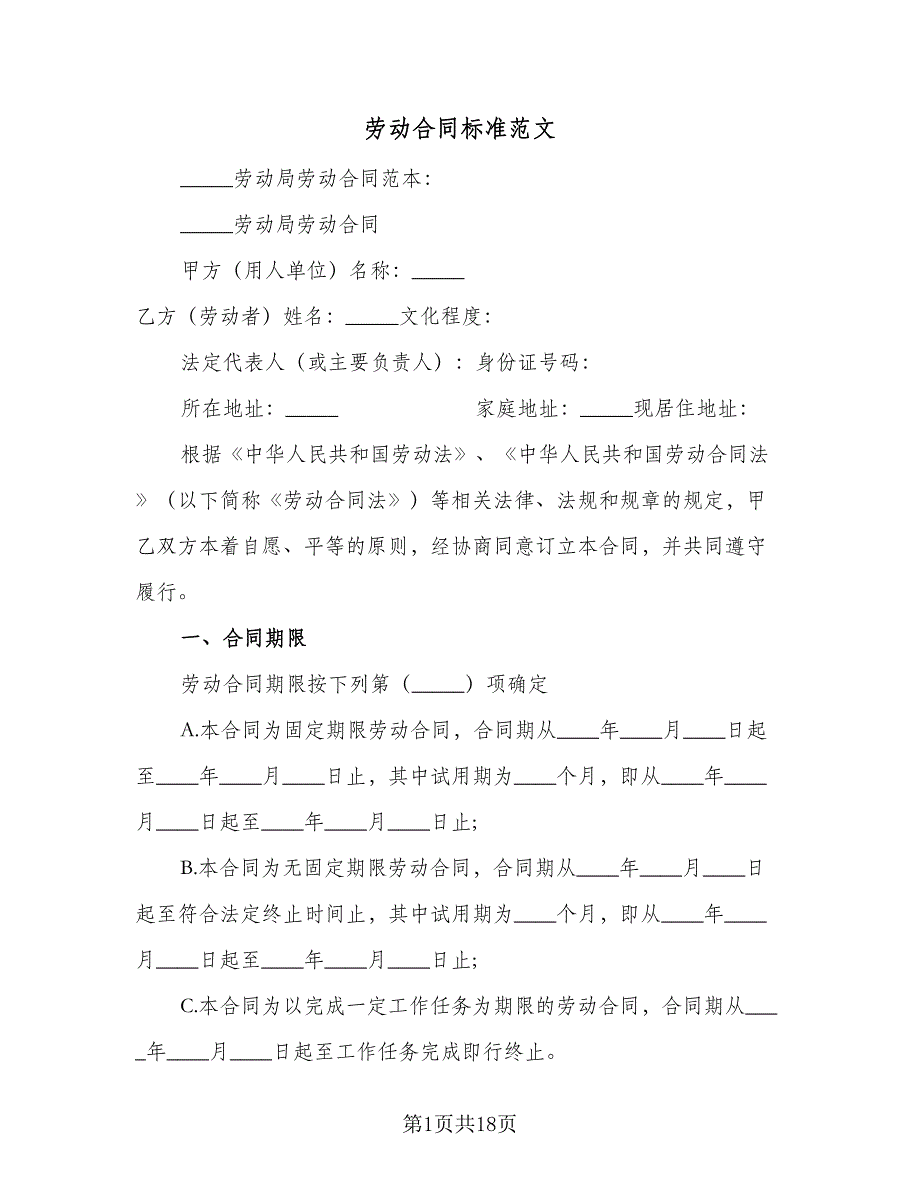 劳动合同标准范文
_____劳动局劳动合同范本：
_____劳动局劳动合同
甲方（用人单位）名称：_____
乙方（劳动者）姓名：_____文化程度：
法定代表人（或主要负责人）：身份证号码：
所在地址：_____ 家庭地址：_____现居住地址：
根据《中华人民共和国劳动法》、《中华人民共和国劳动合同法
》（以下简称《劳动合同法》）等相关法律、法规和规章的规定，甲
乙双方本着自愿、平等的原则，经协商同意订立本合同，并共同遵守
履行。
一、合同期限
劳动合同期限按下列第（_____）项确定
A.本合同为固定期限劳动合同，合同期从____年____月____日起
至____年____月____日止，其中试用期为____个月，即从____年____
月____日起至____年____月____日止;
B.本合同为无固定期限劳动合同，合同期从____年____月____日
起至符合法定终止时间止，其中试用期为____个月，即从____年____
月____日起至____年____月____日止;
C.本合同为以完成一定工作任务为期限的劳动合同，合同期从___
_年____月____日起至工作任务完成即行终止。
第1页共18页